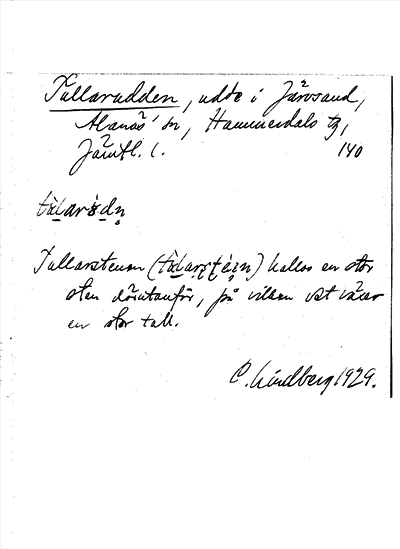 Tallarudden, udde i Järvsand,
Alanäs' sn, Hammerdals tg,
Jämtl. l. 140
tàlarùdn̥
Tallarstenen (tàlarstèi̯n) kallas en stor
sten däratanför, på vilken det växer
en stor tall.
C. Lindberg 1929.